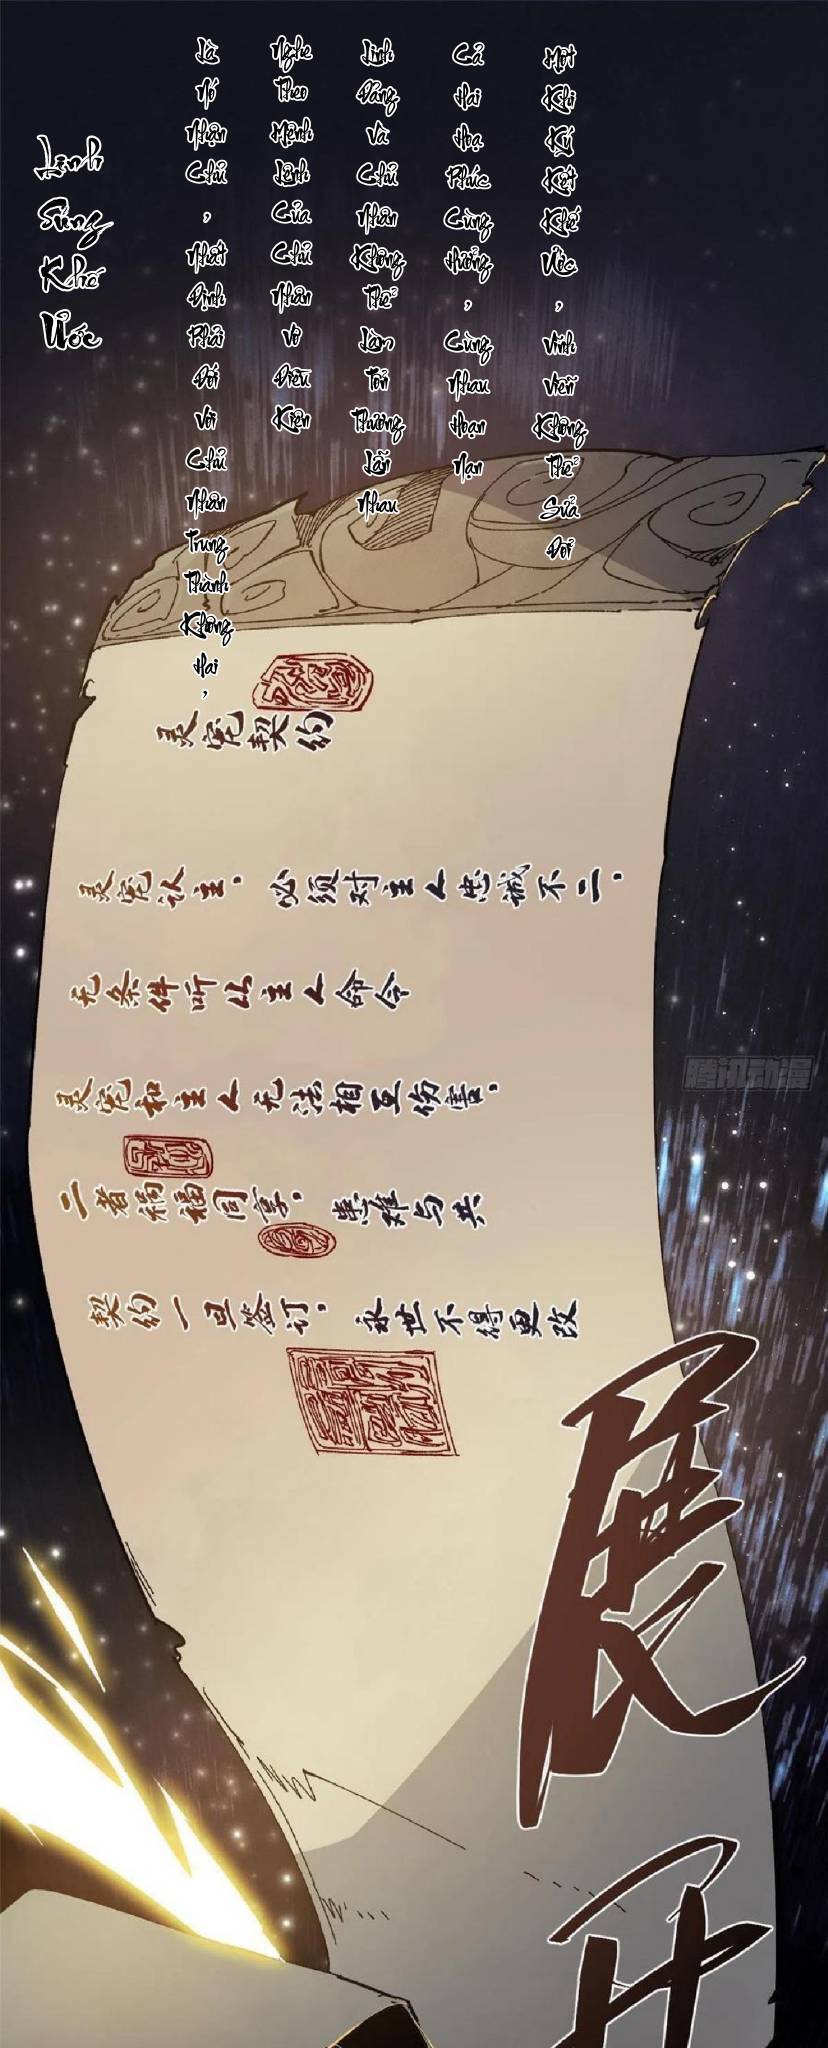 Linh Sủng Khế Ước
Là Nó Nhận Chủ, Nhất Định Phải Đối Với Chủ Nhân Trung Thành Không Hai,
Nghe Theo Mệnh Lệnh Của Chủ Nhân Vô Điều Kiện
Linh Đáng Và Chủ Nhân Không Thể Làm Tổn Thương Lẫn Nhau
Cả Hai Hoạ Phúc Cùng Hưởng, Cùng Nhau Hoạn Nạn
Một Khi Kí Kết Khế Ước, Vĩnh Viễn Không Thể Sửa Đổi
灵宠契约
灵宠认主，必须对主人忠诚不二，
无条件听从主人命令
灵宠和主人无法相互伤害，
二者祸福同享，患难与共
契约一旦签订，永世不得更改
腾讯动漫
展
开